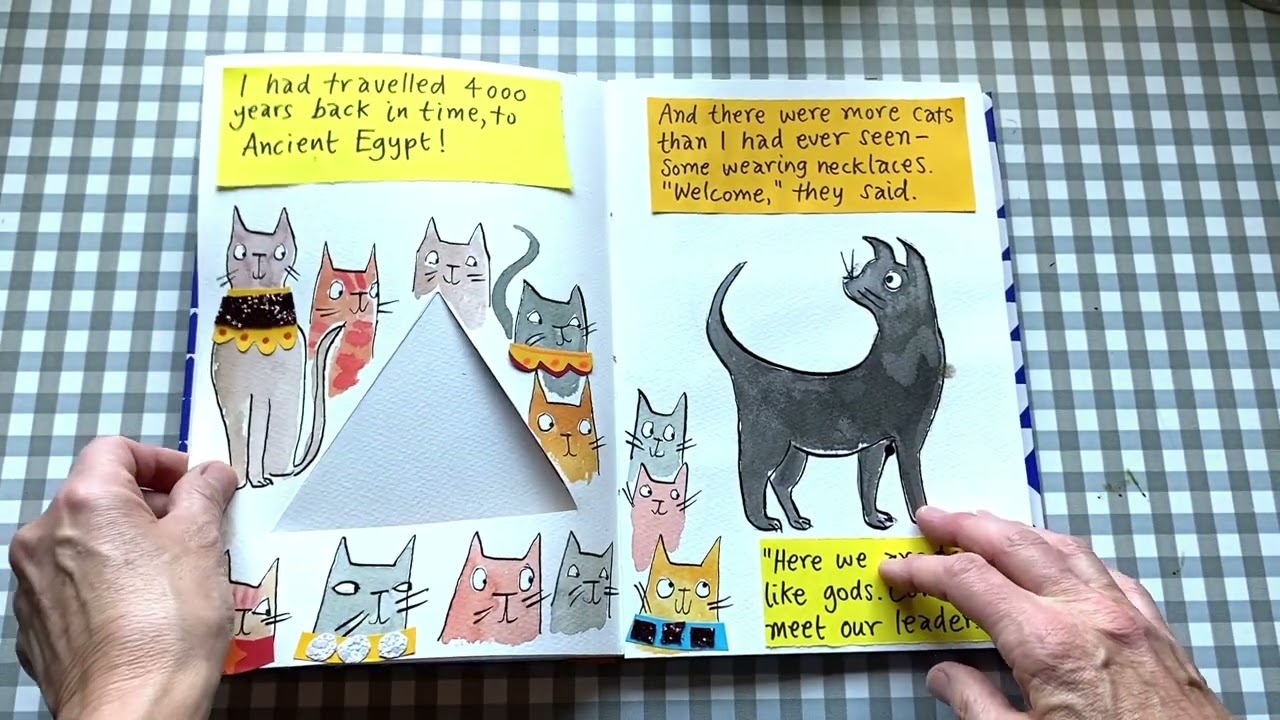 I had travelled 4000
years back in time, to
Ancient Egypt!
And there were more cats
than I had ever seen—
Some wearing necklaces.
"Welcome," they said.
"Here we
like gods.
meet our leader